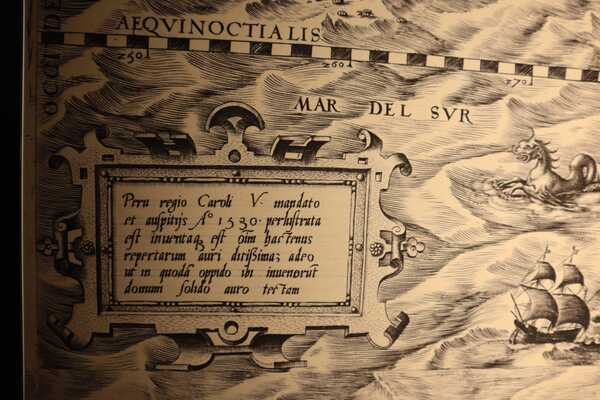 AEQVINOCTIALIS
250
260
270
OCCIDE
MAR DEL SVR
Peru regio Caroli V. mandato
et auspitijs Aº 1530. perlustrata
est inventaq̃ est oĩm hactenus
repertarum auri ditissima; adeo
ut in quodã oppido ibi invenorũt
domum solido auro tectam